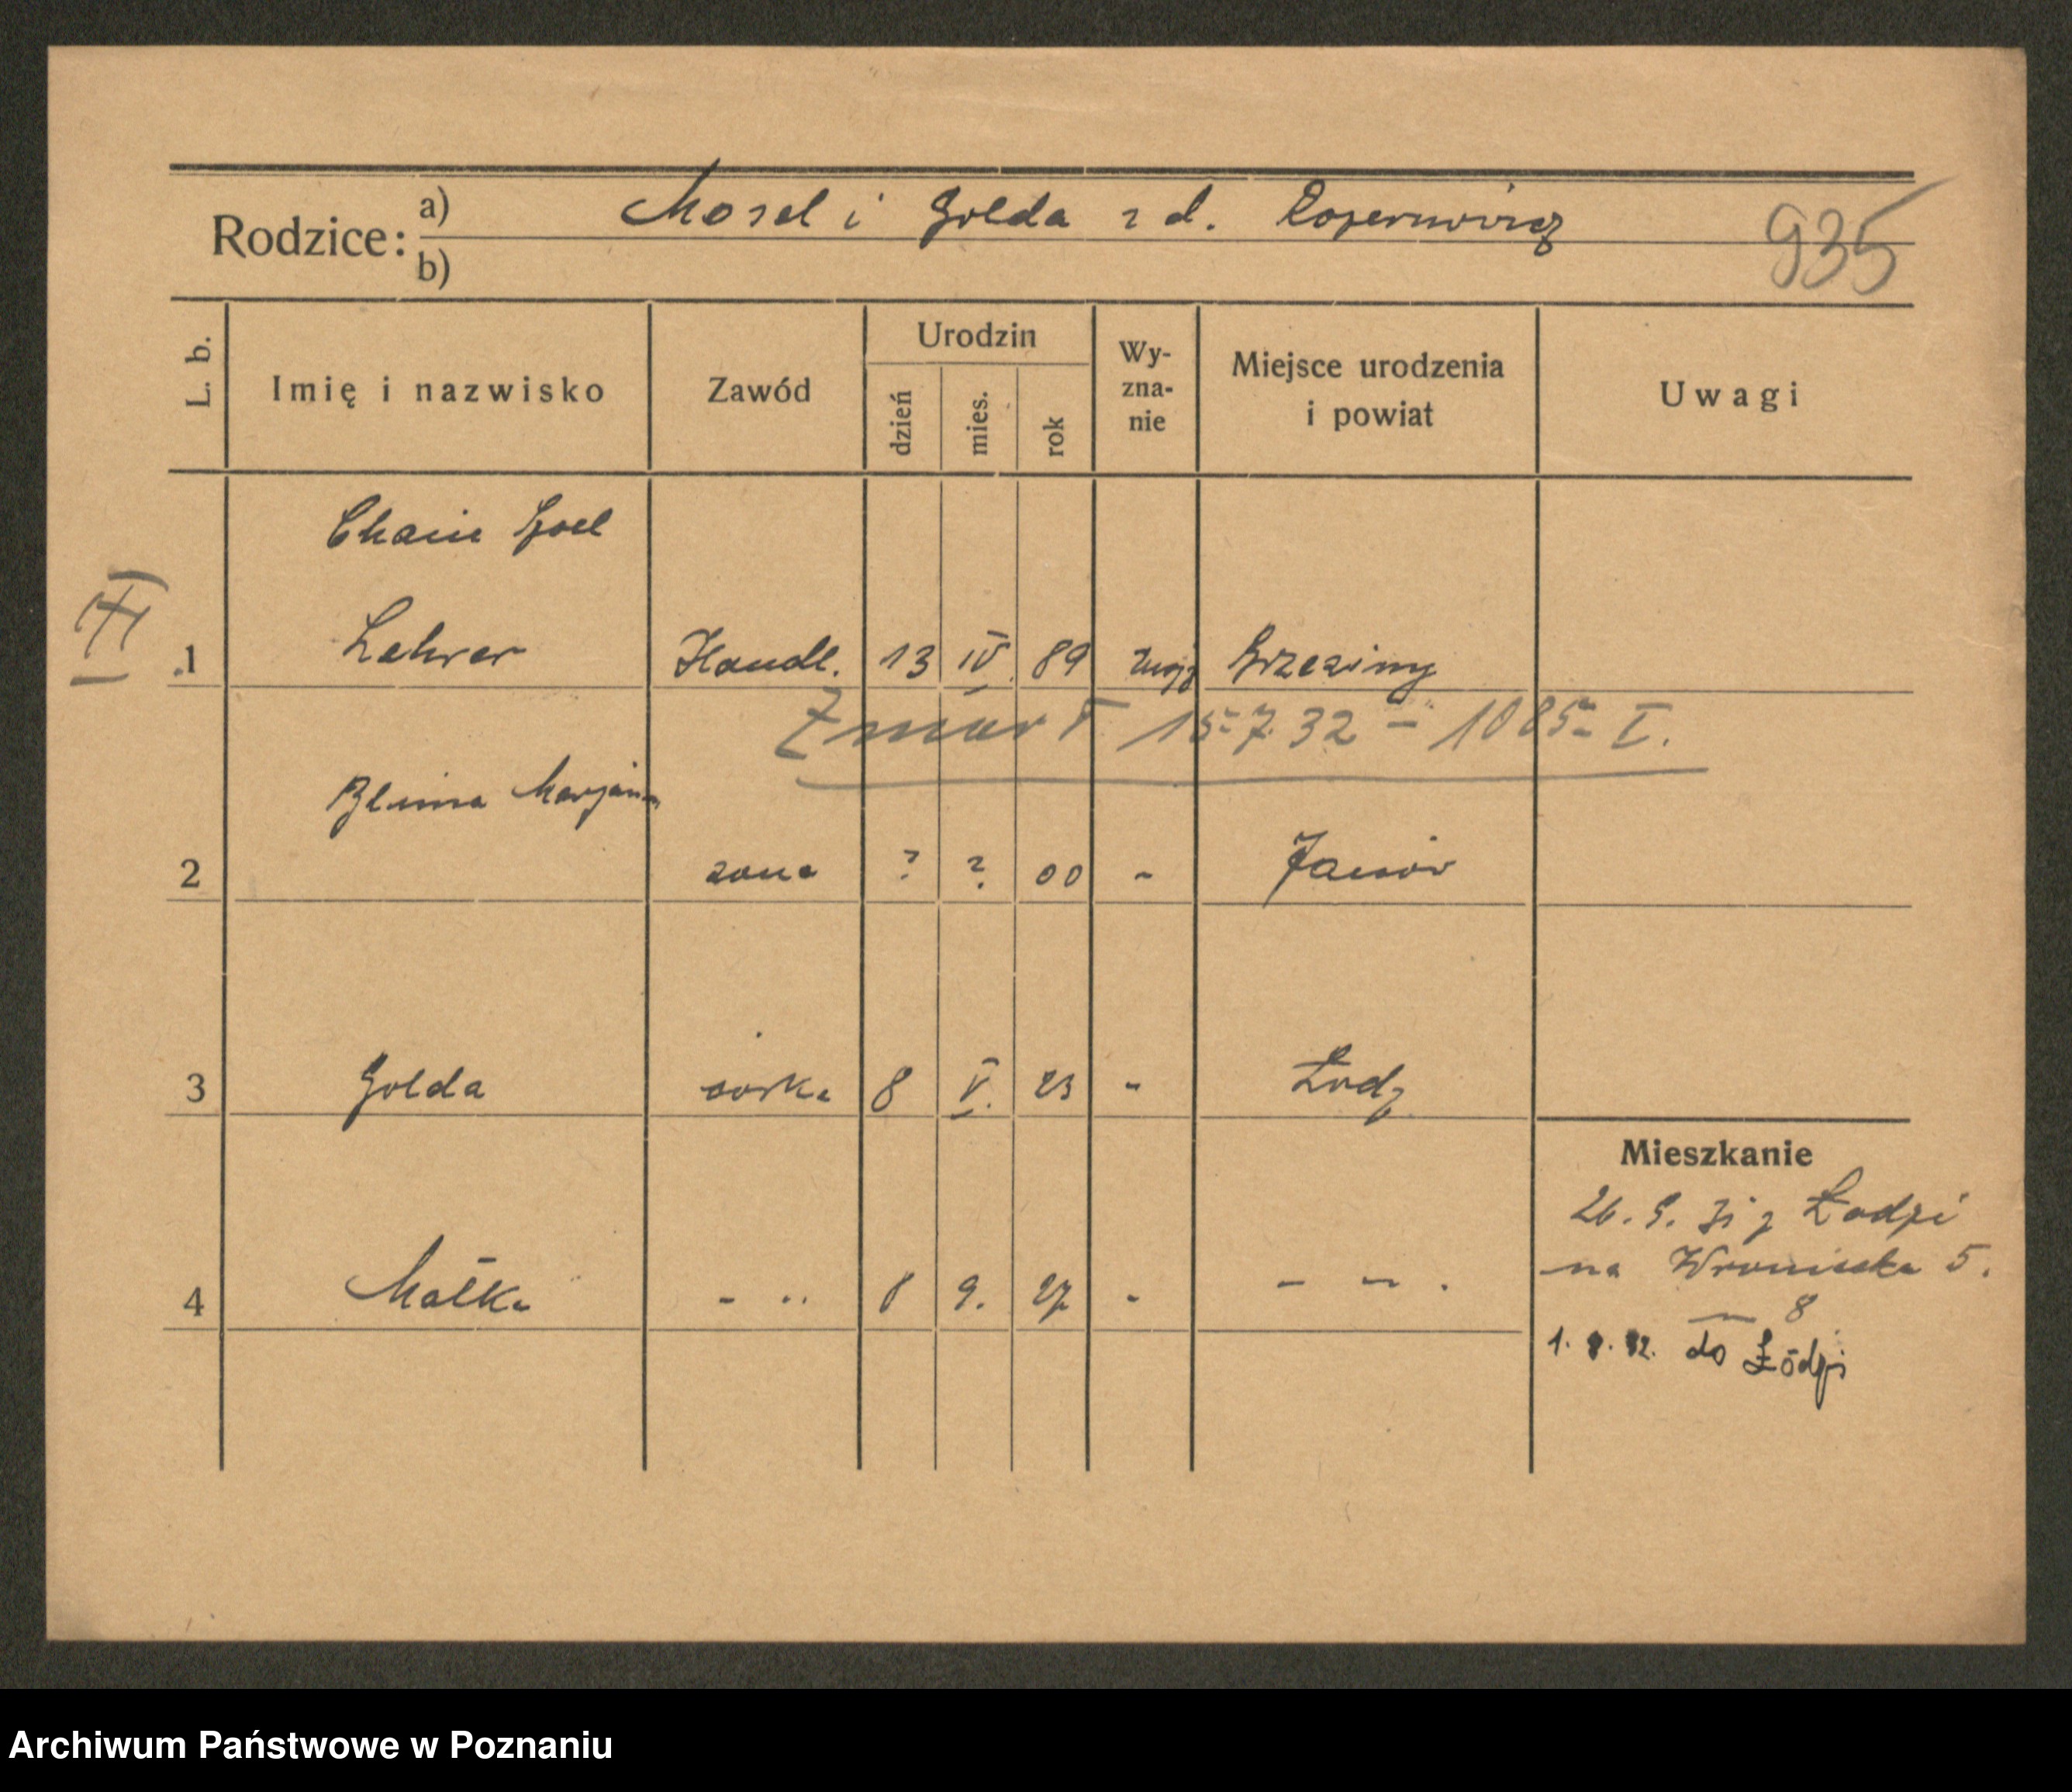 Rodzice: a) Mosel i Golda z d. Rozenowicz
935
b)
L. b. Imię i nazwisko Zawód Urodzin dzień mies. rok Wy-zna-nie Miejsce urodzenia i powiat Uwagi
Chaim
1 Lehrer Handl. 13 IV. 89 mojż Brzeziny
Zmarł 15.7.32 - 1085 I.
Blima Marjanna
2 żona ? ? 00 - Janów
3 Golda córka 8 V. 23 - Łodz
Mieszkanie
26. 9. 31 z Łodzi
4 Małka - „ 8 9. 27 - - „ .
na Wroniecka 5.
— 8
1. 8. 32. do Łódzi
Archiwum Państwowe w Poznaniu